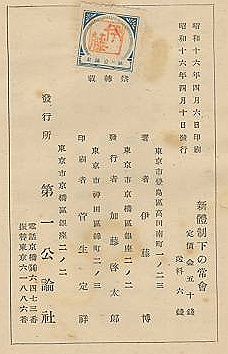 新體制下の常會
定價金五十錢
送料六錢
昭和十六年四月六日印刷
昭和十六年四月十日發行
禁轉載
東京市豐島區高田南町一ノ二三
著者 伊藤博
東京市京橋區銀座二ノ二
發行者 加藤啓太郎
東京市神田區錦町二ノ三
印刷者 菅生定祥
東京市京橋區銀座二ノ二
發行所 第一公論社
電話京橋六四七三番
振替東京六一八八六番